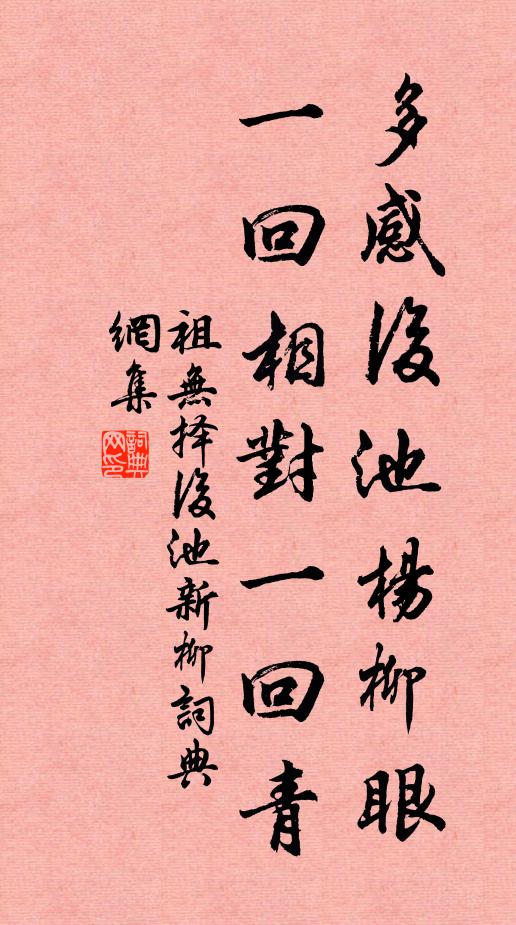 多感後池楊柳眼
一回相對一回青
祖無择後池新柳詞典
網集
詞典網印